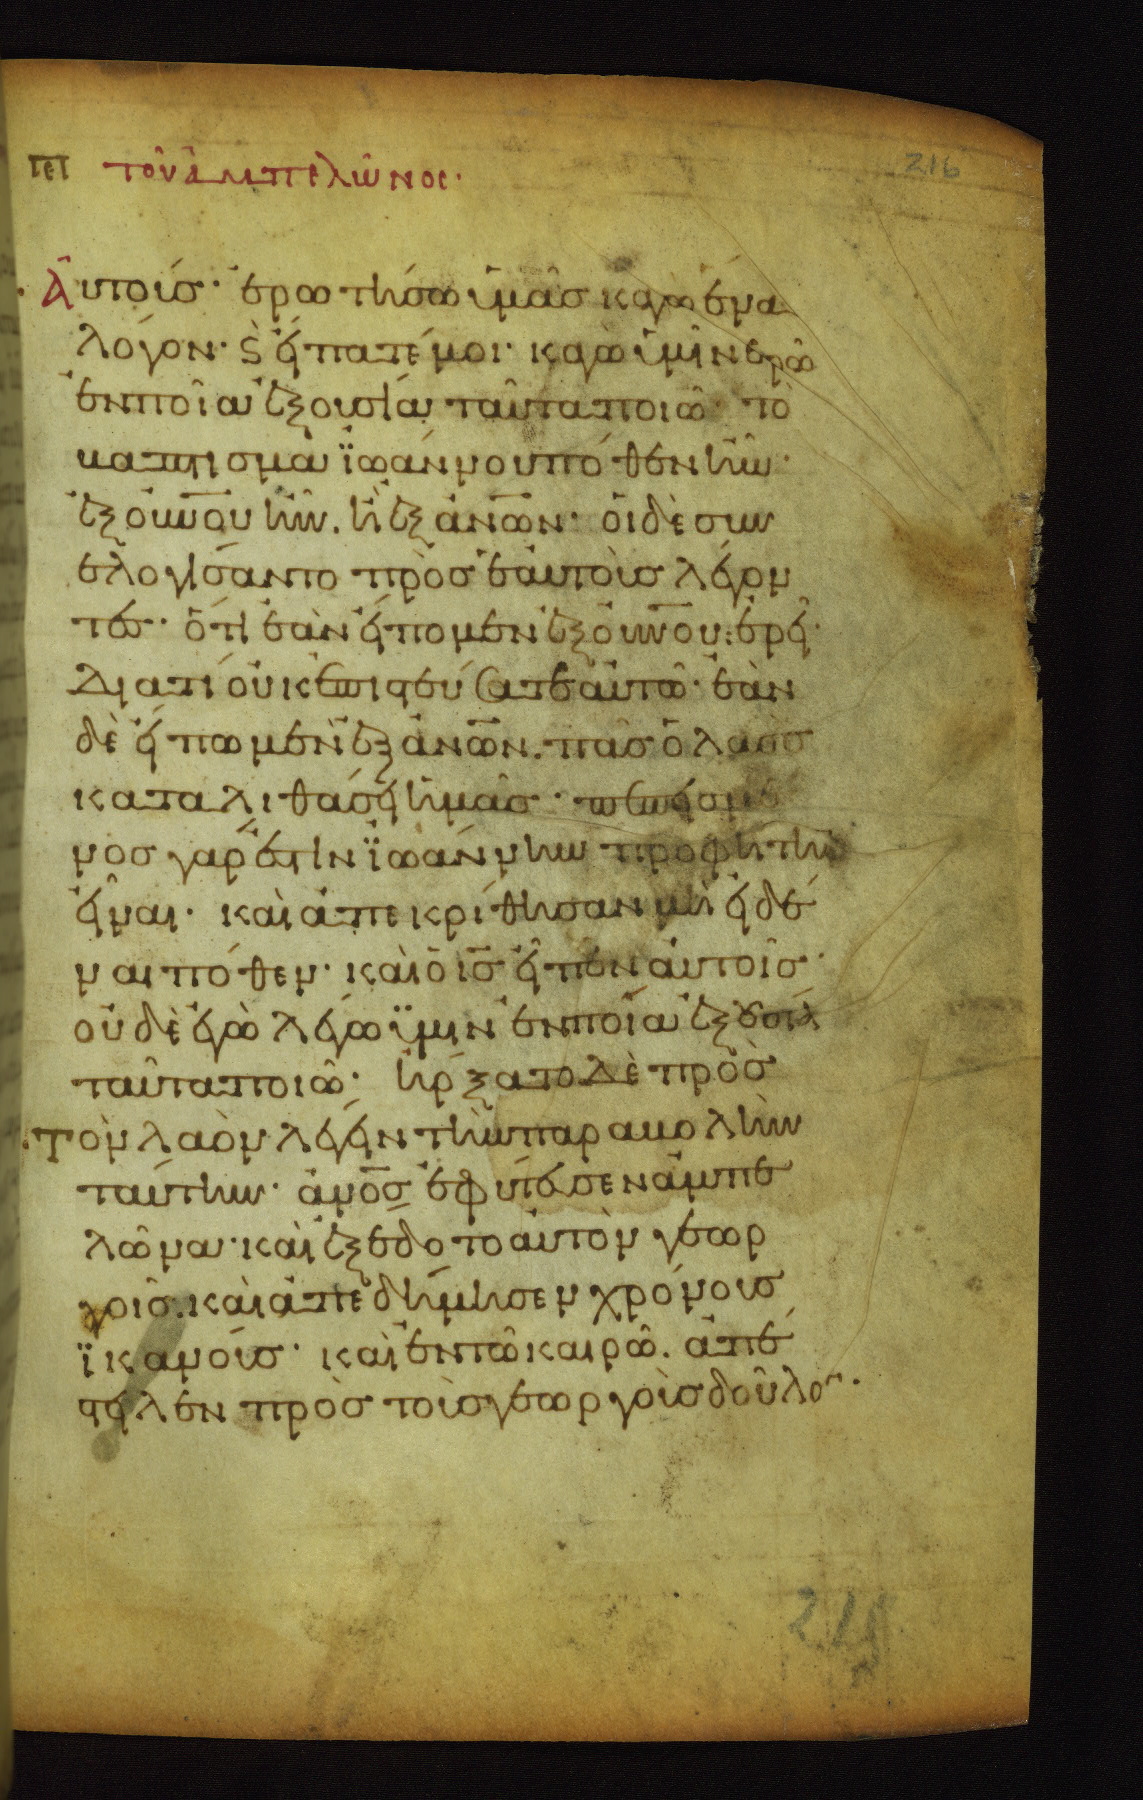 216
του ἀμπελῶνος·
Ἀυτοῖσ· ἐρωτήσω ὑμᾶσ καγὼ ἕνα
λόγον· ϛ εἴπατέ μοι· καγὼ ὑμῖν ἐρῶ
ἐν ποῖα ἐξουσία ταῦτα ποιῶ· τὸ
βάπτισμα ϊωάννου πόθεν ἦν·
ἐξ οὐνοῦ ἦν. ἢ ἐξ ἀνων· οἱ δὲ συν
ελογίσαντο πρὸσ ἑαυτοὺσ λέγον
τεσ· ὅτι ἐὰν εἴπομεν ἐξ οὐνοῦ· ἐρεῖ·
Διατί οὐκ ἐπιστεύσατε αὐτῶ· ἐὰν
δὲ εἴπωμεν ἐξ ἀνων. πᾶσ ὁ λαὸσ
καταλιθάσει ἡμᾶσ· πεπεισμέ
νοσ γάρ ἐστιν ϊωάννην προφήτην
εἶναι· καὶ ἀπεκρίθησαν μὴ εἰδέ
ναι πόθεν· καὶ ὁ ισ εἶπεν αὐτοῖσ·
οὐδὲ ἐγὼ λέγω ϋμιν ἐν ποία ἐξουσία
ταῦτα ποιῶ· ἤρξατο δὲ πρὸσ
τὸν λαὸν λέγειν τὴν παραβολὴν
ταύτην· ἀνοσ ἐφύτευσεν ἀμπε
λῶνα· καὶ ἐξέδοτο αὐτὸν γεωρ
γοῖσ. καὶ ἀπεδήμησεν χρόνουσ
ϊκανούσ· καὶ ἐν τῶ καιρῶ. ἀπέ
στειλεν πρὸσ τοὺσ γεωργοὺσ δοῦλον·